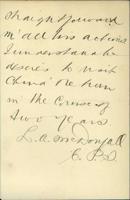 straight forward
in all his actions
I understand he
desires to visit
China
in the Cruise of
two years
L. A. McDougall